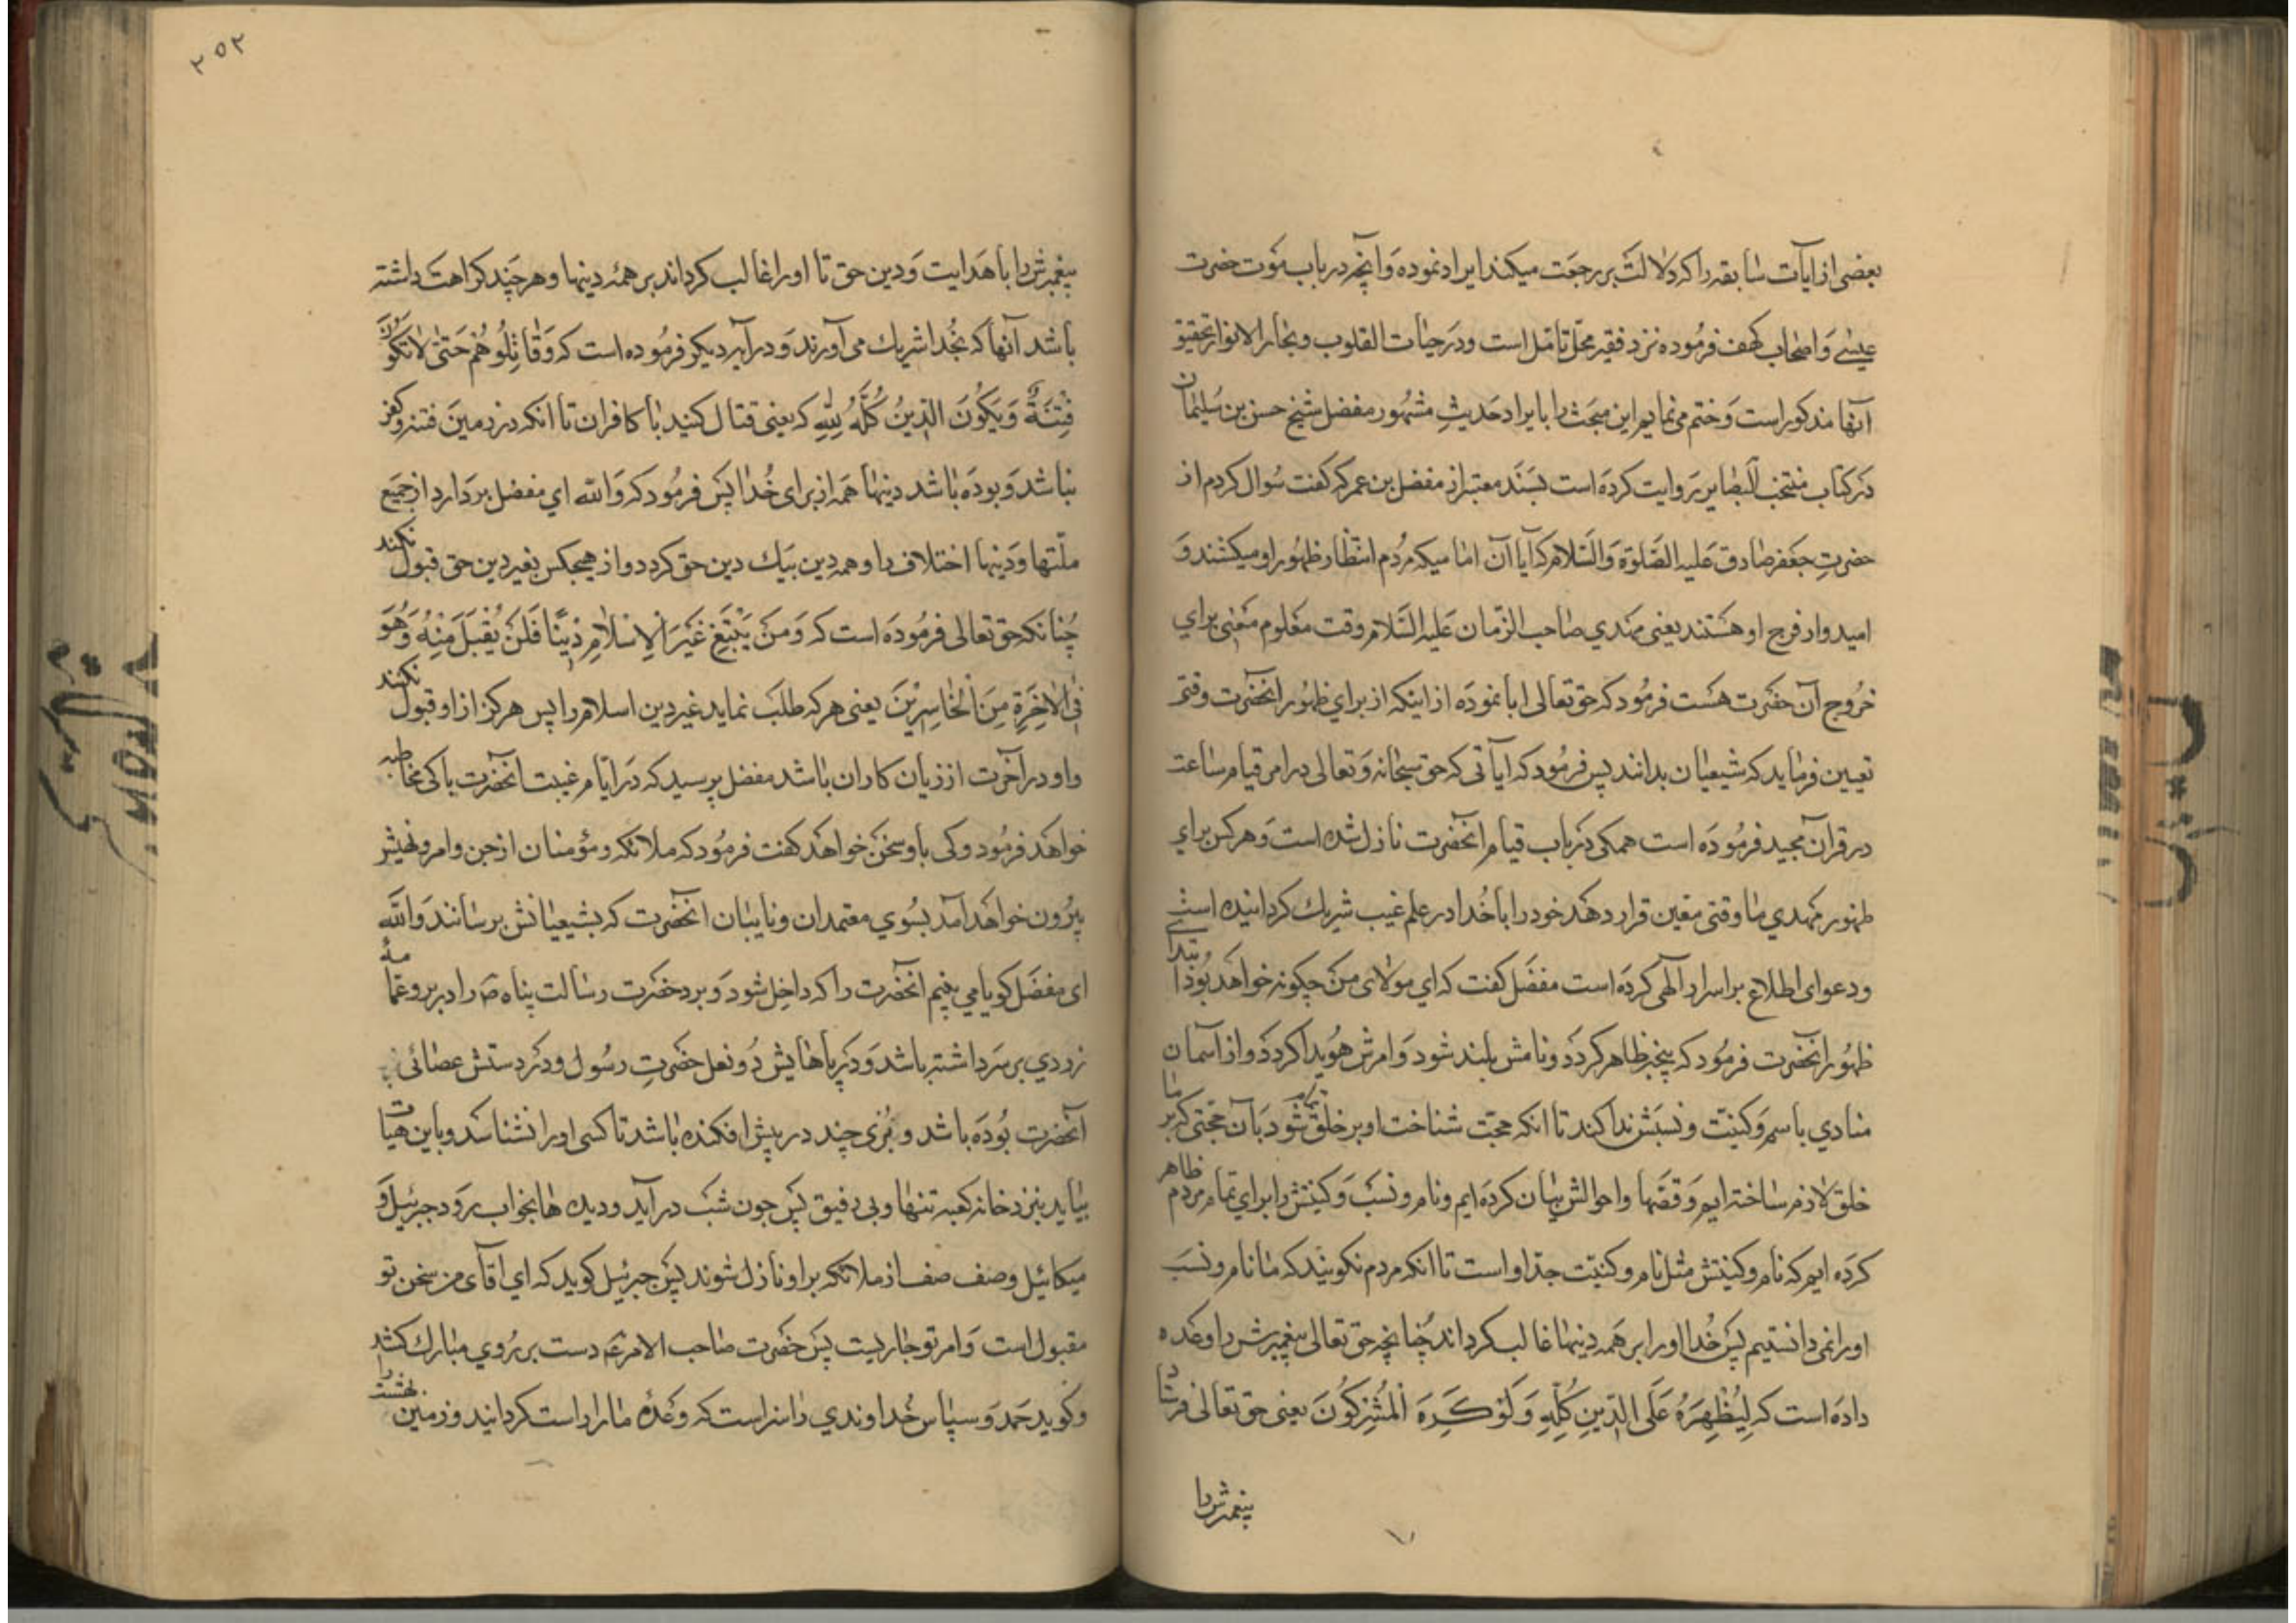 بعضی از ایات سابقه را که دلالت بر رجعت میکند ایراد نموده و آنچه در باب موت حضرت
عیسی و اصحاب کهف فرموده نزد فقیر محل تامل است و در حیات القلوب و بحار الانوار تحقیق
آنها مذکور است و ختم می نمایم این مبحث را بایراد حدیث مشهور مفضل شیخ حسن بن سلیمان
در کتاب منتخب البصایر روایت کرده است بسند معتبر از مفضل بن عمر که کفت سوال کردم از
حضرت جعفر صادق علیه الصلوة والسلام که آیا آن امامیکه مردم انتظار ظهور او میکشند و
امیدوار فرج او هستند یعنی مهدي صاحب الزمان علیه السلام وقت معلوم معینی براي
خروج آن حضرت هست فرمود که حق تعالی ابا نموده از اینکه از براي ظهور انحضرت وقتی
تعیین فرماید که شیعیان بدانند پس فرمود که ایاتی که حق سبحانه و تعالی در امر قیام ساعت
در قرآن مجید فرموده است همکی در باب قیام انحضرت نازل شده است و هر کس برای
ظهور مهدي ما وقتی معین قرار دهد خود را با خدا در علم غیب شریك کردانیده است
و دعوای اطلاع بر اسرار الهی کرده است مفضل کفت که اي مولای من چکونه خواهد بود ابتدا
ظهور انحضرت فرمود که بیخبر ظاهر کردد و نامش بلند شود و امرش هویدا کردد و از آسمان
منادي باسم و کنیت و نسبش ندا کند تا انکه حجت شناخت او بر خلق تمام شود بآن حجتی که ما بر
خلق لازم ساخته ایم و قصها و احوالش بیان کرده ایم و نام و نسب و کنیتش را براي تمام مردم ظاهر
کرده ایم که نام و کنیتش مثل نام و کنیت جد او است تا انکه مردم نکویند که ما نام و نسب
او را نمی دانستیم پس خدا او را بر همه دینها غالب کرداند چنانچه حق تعالی پیغمبرش را وعده
داده است که لِيُظْهِرَهُ عَلَى الدِّينِ كُلِّهِ وَلَوْ كَرِهَ الْمُشْرِكُونَ یعنی حق تعالی فرستاد
پیغمبرش را
۲۵۲
پیغمبرش را با هدایت و دین حق تا او را غالب کرداند بر همه دینها و هر چند کراهت داشته
باشد آنها که بخدا شریك می آورند و در آیه دیکر فرموده است که وَقَاتِلُوهُمْ حَتَّى لَا تَكُونَ
فِتْنَةٌ وَيَكُونَ الدِّينُ كُلُّهُ لِلَّهِ که یعنی قتال کنید با کافران تا انکه در زمین فتنه و کفر
نباشد و بوده باشد دینها همه از برای خدا پس فرمود که والله اي مفضل بردارد از جمیع
ملتها و دینها اختلاف را و همه دین بیك دین حق کردد و از هیچکس بغیر دین حق قبول نکند
چنانکه حق تعالی فرموده است که وَمَن يَبْتَغِ غَيْرَ الْإِسْلَامِ دِينًا فَلَن يُقْبَلَ مِنْهُ وَهُوَ
فِي الْآخِرَةِ مِنَ الْخَاسِرِينَ یعنی هر که طلب نماید غیر دین اسلام را پس هرکز از او قبول نکنند
و او در آخرت از زیان کاران باشد مفضل پرسید که در ایام غیبت انحضرت با کی مخاطبه
خواهد فرمود و کی با او سخن خواهد کفت فرمود که ملائکه و مؤمنان از جن و امر و نهیش
بیرون خواهد آمد بسوي معتمدان و نایبان انحضرت که بشیعیانش برسانند والله
ای مفضل کویا می بینم انحضرت را که داخل شود و برد حضرت رسالت پناه ص را در بر و عمامهٔ
زردي بر سر داشته باشد و در پاهایش دو نعل حضرت رسول و در دستش عصائی
آنحضرت بوده باشد و بزی چند در پیش افکنده باشد تا کسی او را نشناسد و باین هیات
بیاید بنزد خانه کعبه تنها و بی رفیق پس چون شب درآید و دیده ها بخواب رود جبرئیل و
میکائیل و صف صف از ملائکه بر او نازل شوند پس جبرئیل کوید که اي اقای من سخن تو
مقبول است و امر تو جاریست پس حضرت صاحب الامر ع دست بر روي مبارك کشد
و کوید حمد و سپاس خداوندي را سزاست که وعدهٔ ما را راست کردانید و زمین بهشت را